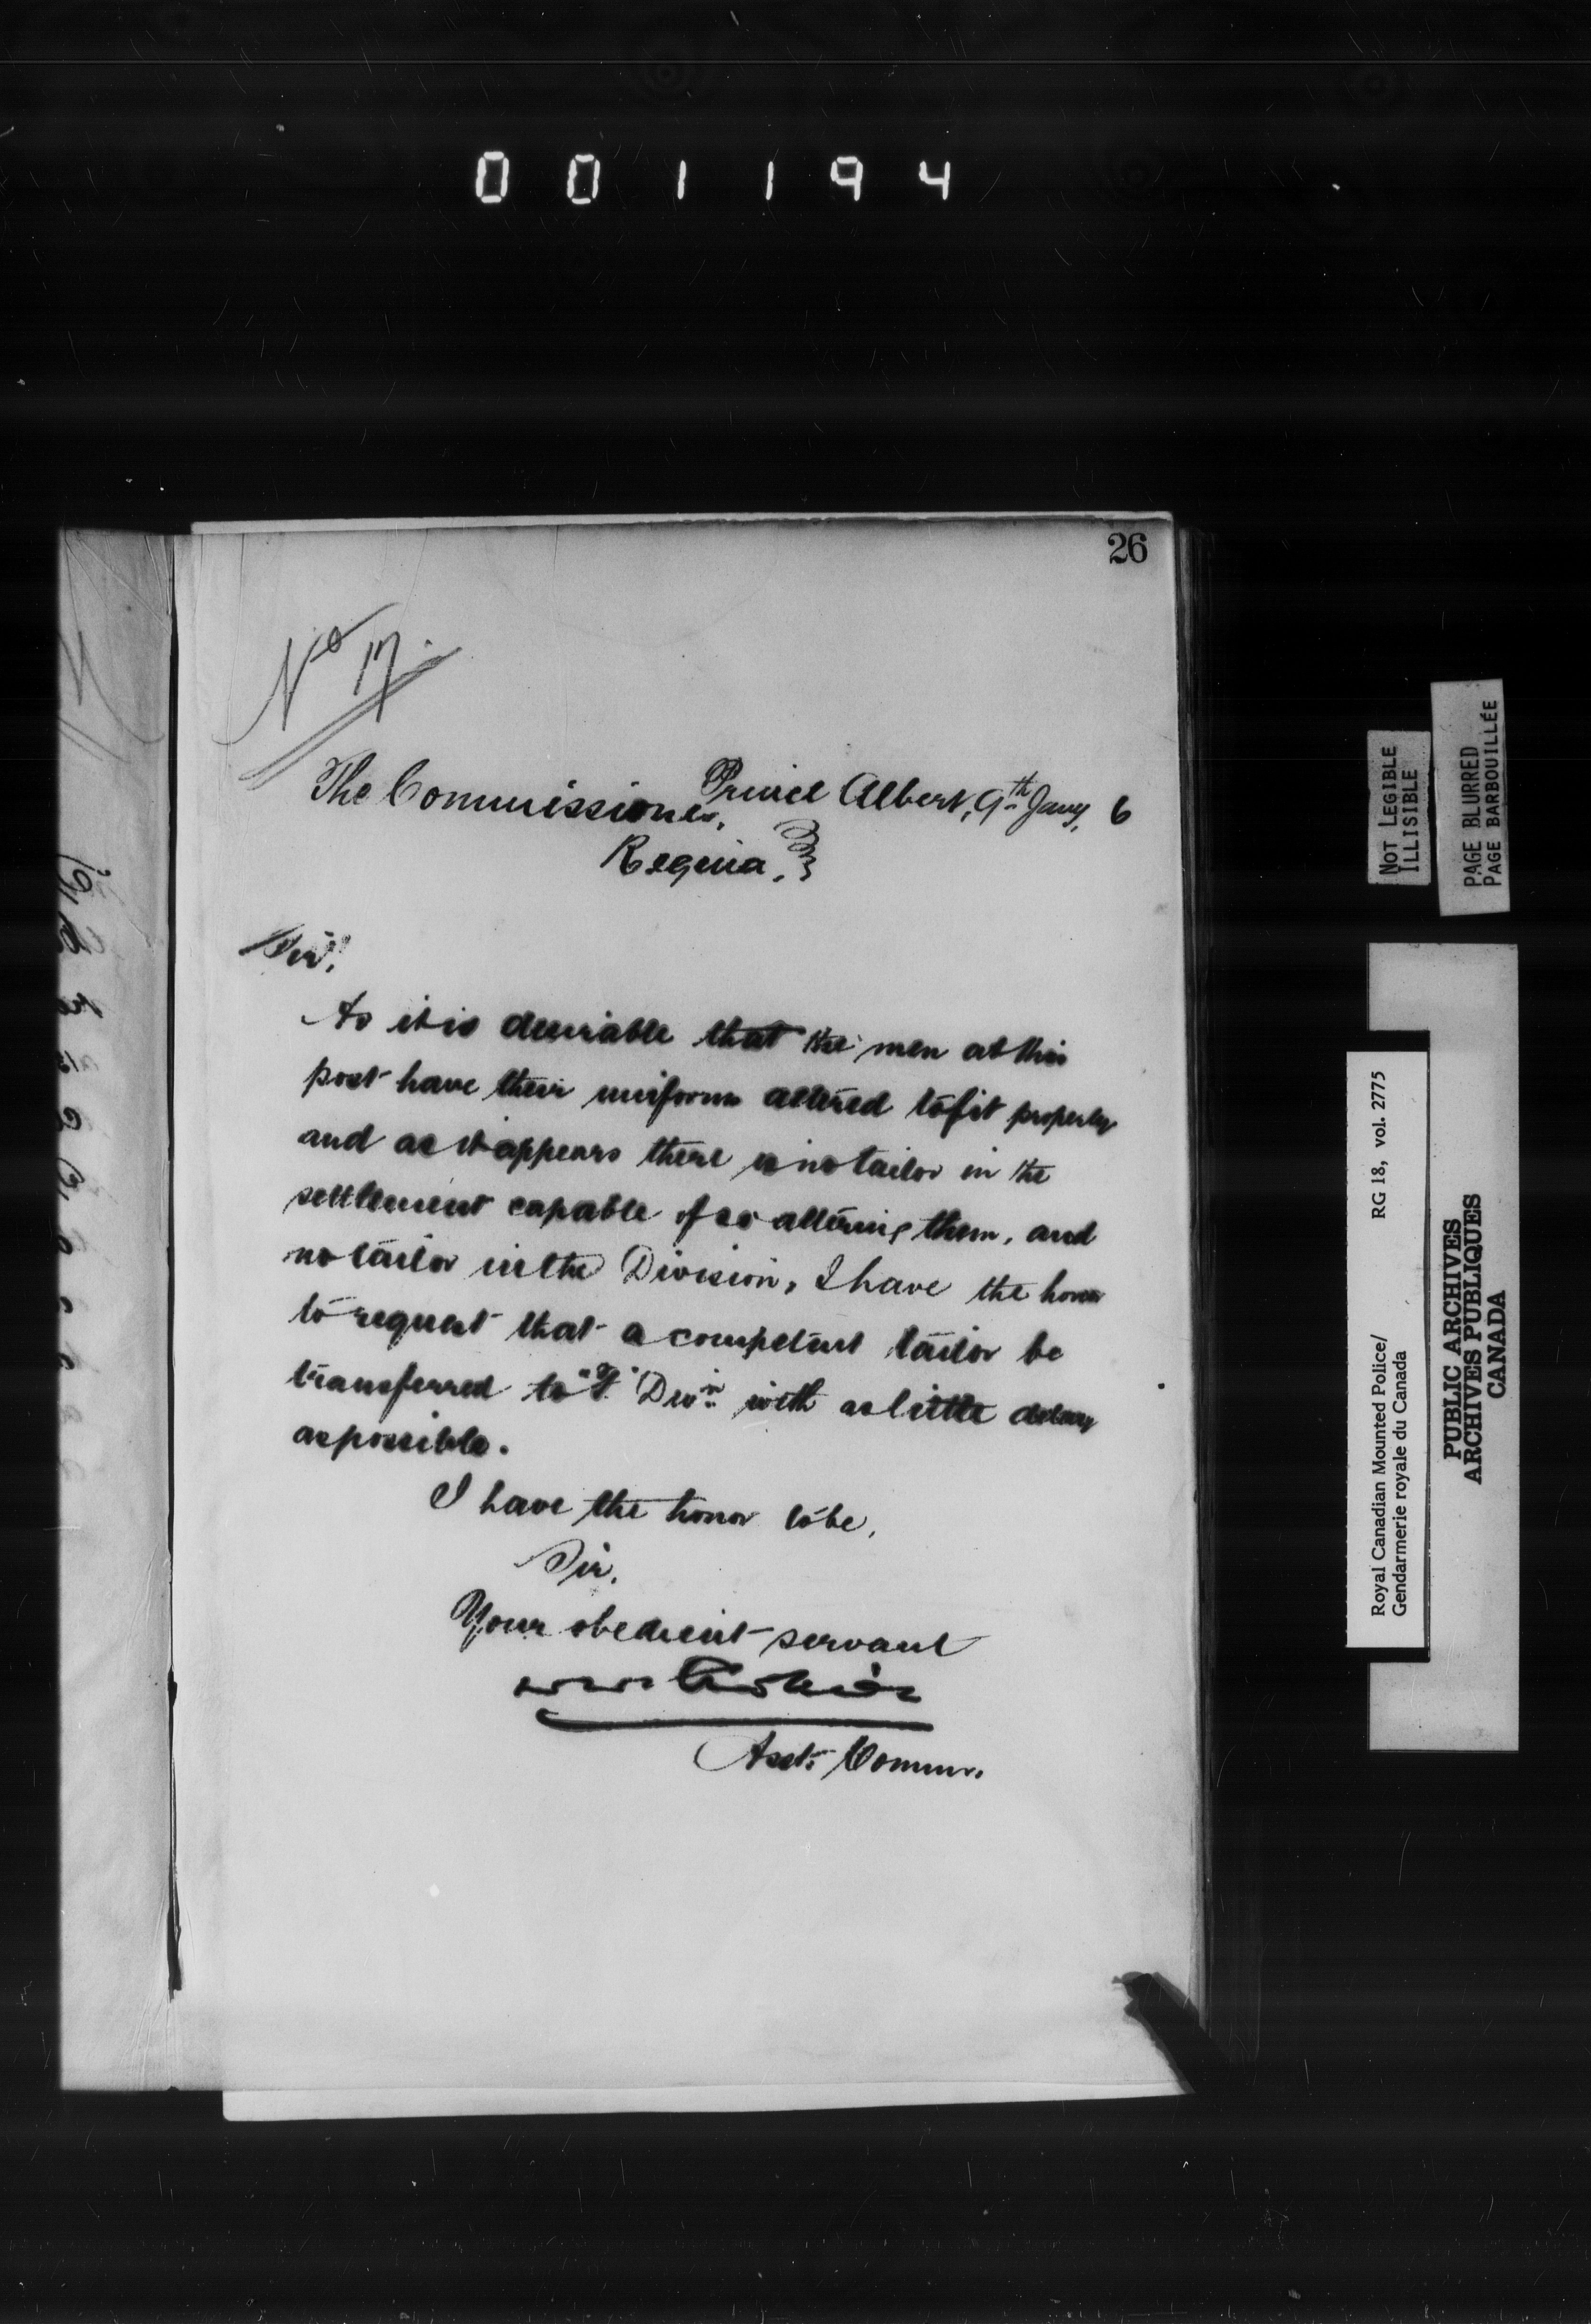 001194
26
No 17.
Prince Albert, 9th Jany, 6
The Commissioner,
Regina.
Sir,
As it is desirable that the men at this
post have their uniforms altered to fit properly
and as it appears there is no tailor in the
settlement capable of so altering them, and
no tailor in the Division, I have the honor
to request that a competent tailor be
transferred to "F" Divn. with as little delay
as possible.
I have the honor to be,
Sir,
Your obedient servant
Asst. Commr.
NOT LEGIBLE
ILLISIBLE
PAGE BLURRED
PAGE BARBOUILLÉE
Royal Canadian Mounted Police/ RG 18, vol. 2775
Gendarmerie royale du Canada
PUBLIC ARCHIVES
ARCHIVES PUBLIQUES
CANADA